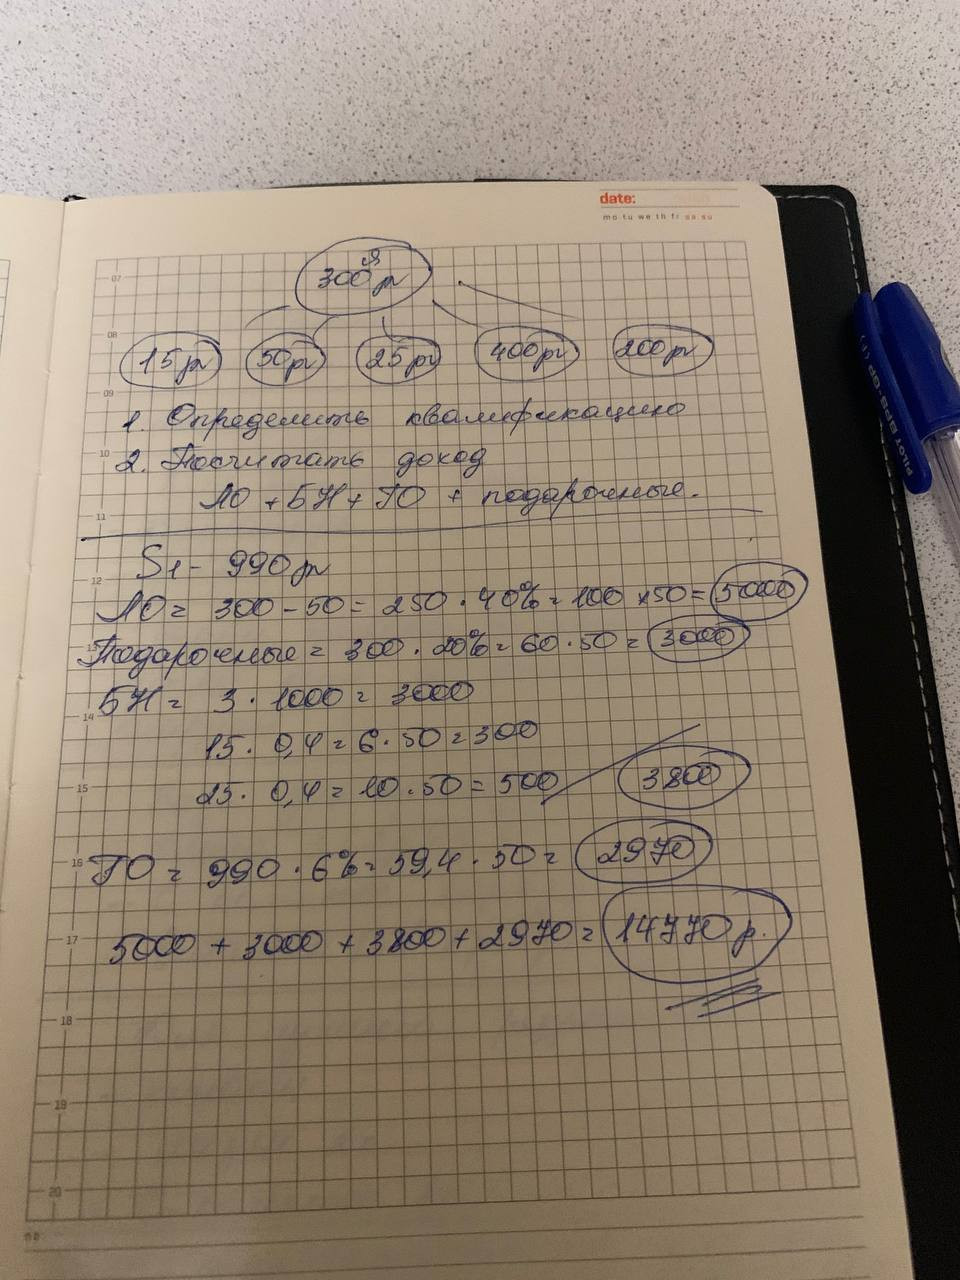 date:
mo tu we th fr sa su
Я
300 p
15 p 50 p 25 p 400 p 200 p
1. Определить квалификацию
2. Посчитать доход
ЛО + БН + ГО + подарочные.
S1 - 990 p
ЛО = 300 - 50 = 250 · 40% = 100 × 50 = 5000
Подарочные = 300 · 20% = 60 · 50 = 3000
БН = 3 · 1000 = 3000
15 · 0,4 = 6 · 50 = 300
25 · 0,4 = 10 · 50 = 500 3800
ГО = 990 · 6% = 59,4 · 50 = 2970
5000 + 3000 + 3800 + 2970 = 14770 р.
07
08
09
10
11
12
13
14
15
16
17
18
19
20
PILOT BPS-GP